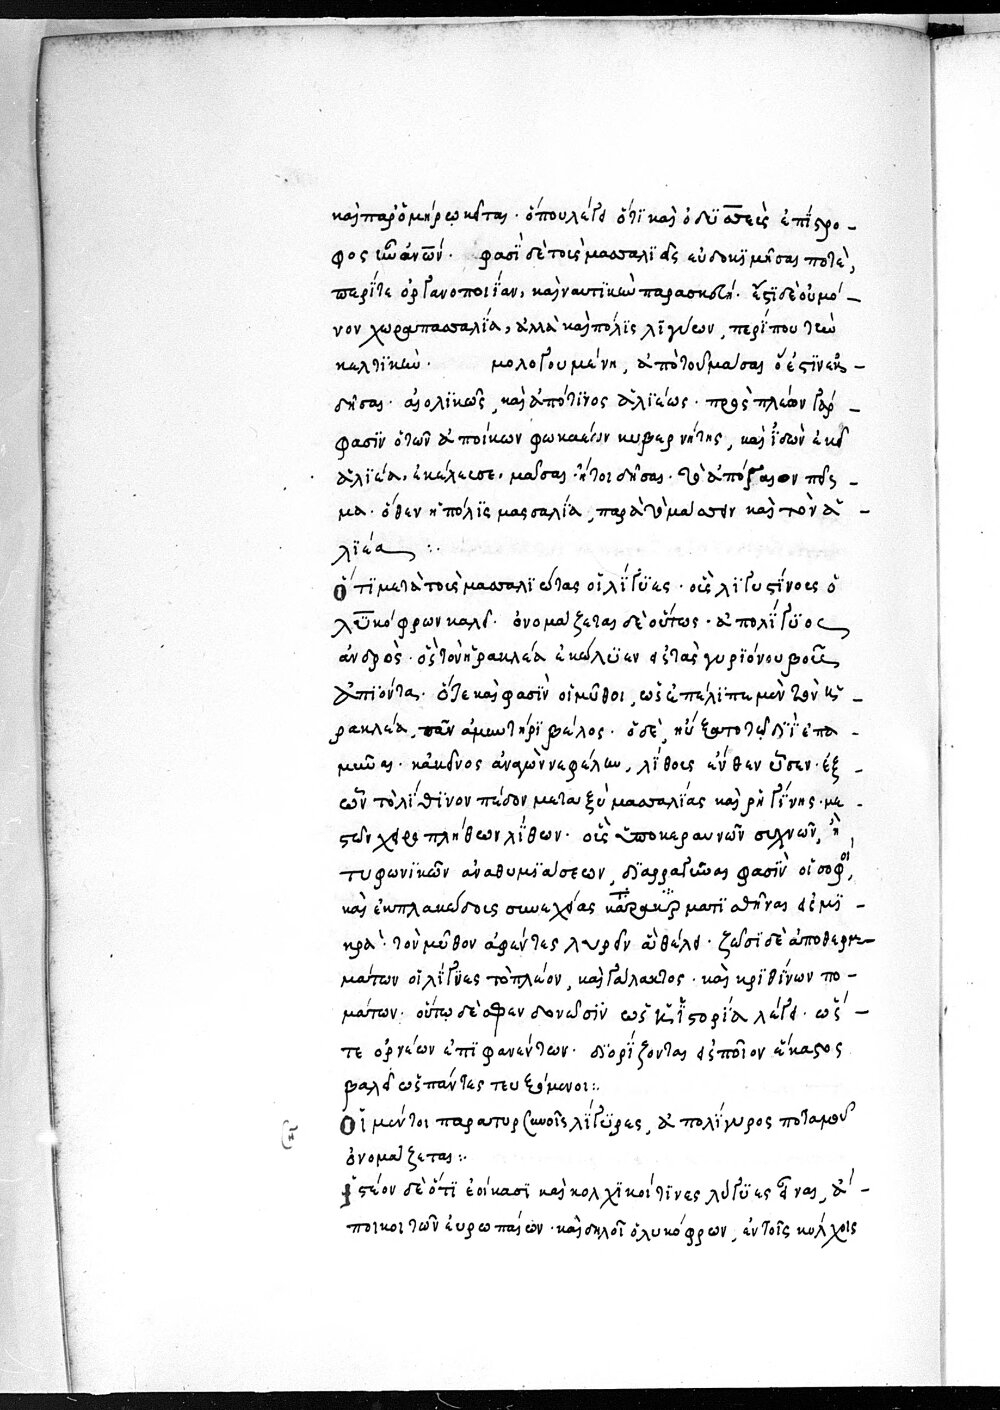 καὶ παρ' ὁμήρῳ κεῖται· ὅπου λέγει ὅτι καὶ ὀδυσσεὺς ἐπίστρο-
φος ἦν ἀνθρώπων· φασὶ δὲ τοὺς μασσαλιώτας εὐδοκιμῆσαί ποτε,
περί τε ὀργανοποιίαν, καὶ ναυτικὴν παρασκευήν. ἔστι δὲ οὐ μό-
νον χώρα μασσαλία, ἀλλὰ καὶ πόλις λιγύων, περί που τὴν
κελτικὴν. μολογουμένη, ἀπὸ τοῦ μάσσαι ὅ ἐστιν
δῆσαι αἰολικῶς, καὶ ἀπό τινος ἁλιέως· προσπλέων γάρ
φασιν ὁ τῶν ἀποίκων φωκαέων κυβερνήτης, καὶ ἰδὼν ἐκεῖ
ἁλιέα, ἐκέλευσε, μάσσαι ἤτοι δῆσαι τὸ ἀπόγαιον πεῖσ-
μα· ὅθεν ἡ πόλις μασσαλία, παρὰ τὸ μάσσειν καὶ τὸν ἁ-
λιέα :·
Ὅτι μετὰ τοὺς μασσαλιώτας οἱ λίγυες· οὓς λιγυστίνους ὁ
λυκόφρων καλεῖ· ὀνομάζεται δὲ οὕτως ἀπὸ λίγυος
ἀνδρὸς· ὃς τὸν ἡρακλέα ἐκώλυεν ἐπὶ τὰς γηρυόνου βοῦς
ἀπιόντα· ὅτε καὶ φασὶν οἱ μῦθοι, ὡς ἐπέλιπε μὲν τὸν ἡ-
ρακλέα, πᾶν ἀμυντήριον βέλος· ὁ δὲ, ηὔξατο τῷ διῒ ἐπα-
μῦναι· κἀκεῖνος ἀγαγὼν νεφέλην, λίθους ἔνθεν ὗσεν· ἐξ
ὧν τὸ λίθινον πέδον μεταξὺ μασσαλίας καὶ ῥηγίνης· με-
στὸν χειροπληθῶν λίθων· οὓς ὑπὸ κεραυνῶν συχνῶν, ἢ
τυφωνικῶν ἀναθυμιάσεων, διαρραγῆναί φασιν οἱ σοφοί,
καὶ ἐκπλακέντας συνεχείας
τὸν μῦθον ἀφέντες ληρεῖν ζῶσι δὲ ἀπὸ θρεμ-
μάτων οἱ λίγυες τὸ πλέον, καὶ γάλακτος· καὶ κριθίνων πο-
μάτων· οὕτω δὲ σφενδονῶσιν ὡς ἡ ἱστορία λέγει· ὥσ-
τε ὀρνέων ἐπιφανέντων· διορίζονται ποῖον ἕκαστος
βαλεῖ ὡς πάντες τευξόμενοι :·
Οἱ μέντοι παρὰ τυρσηνοῖς λίγυρες, ἀπὸ λίγυρος ποταμοῦ
ὀνομάζεται :·
Ἰστέον δὲ ὅτι ἐοίκασι καὶ κολχικοί τινες λίγυες εἶναι, ἄ-
ποικοι τῶν εὐρωπαίων· καὶ δηλοῖ ὁ λυκόφρων, ἐν τοῖς κόλχοις